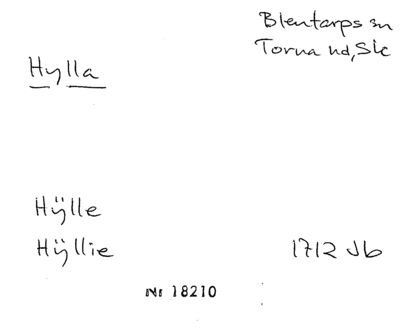 Blentarps sn
Torna hd, Sk
Hylla
Hÿlle
Hÿllie 1712 Jb
Nr 18210